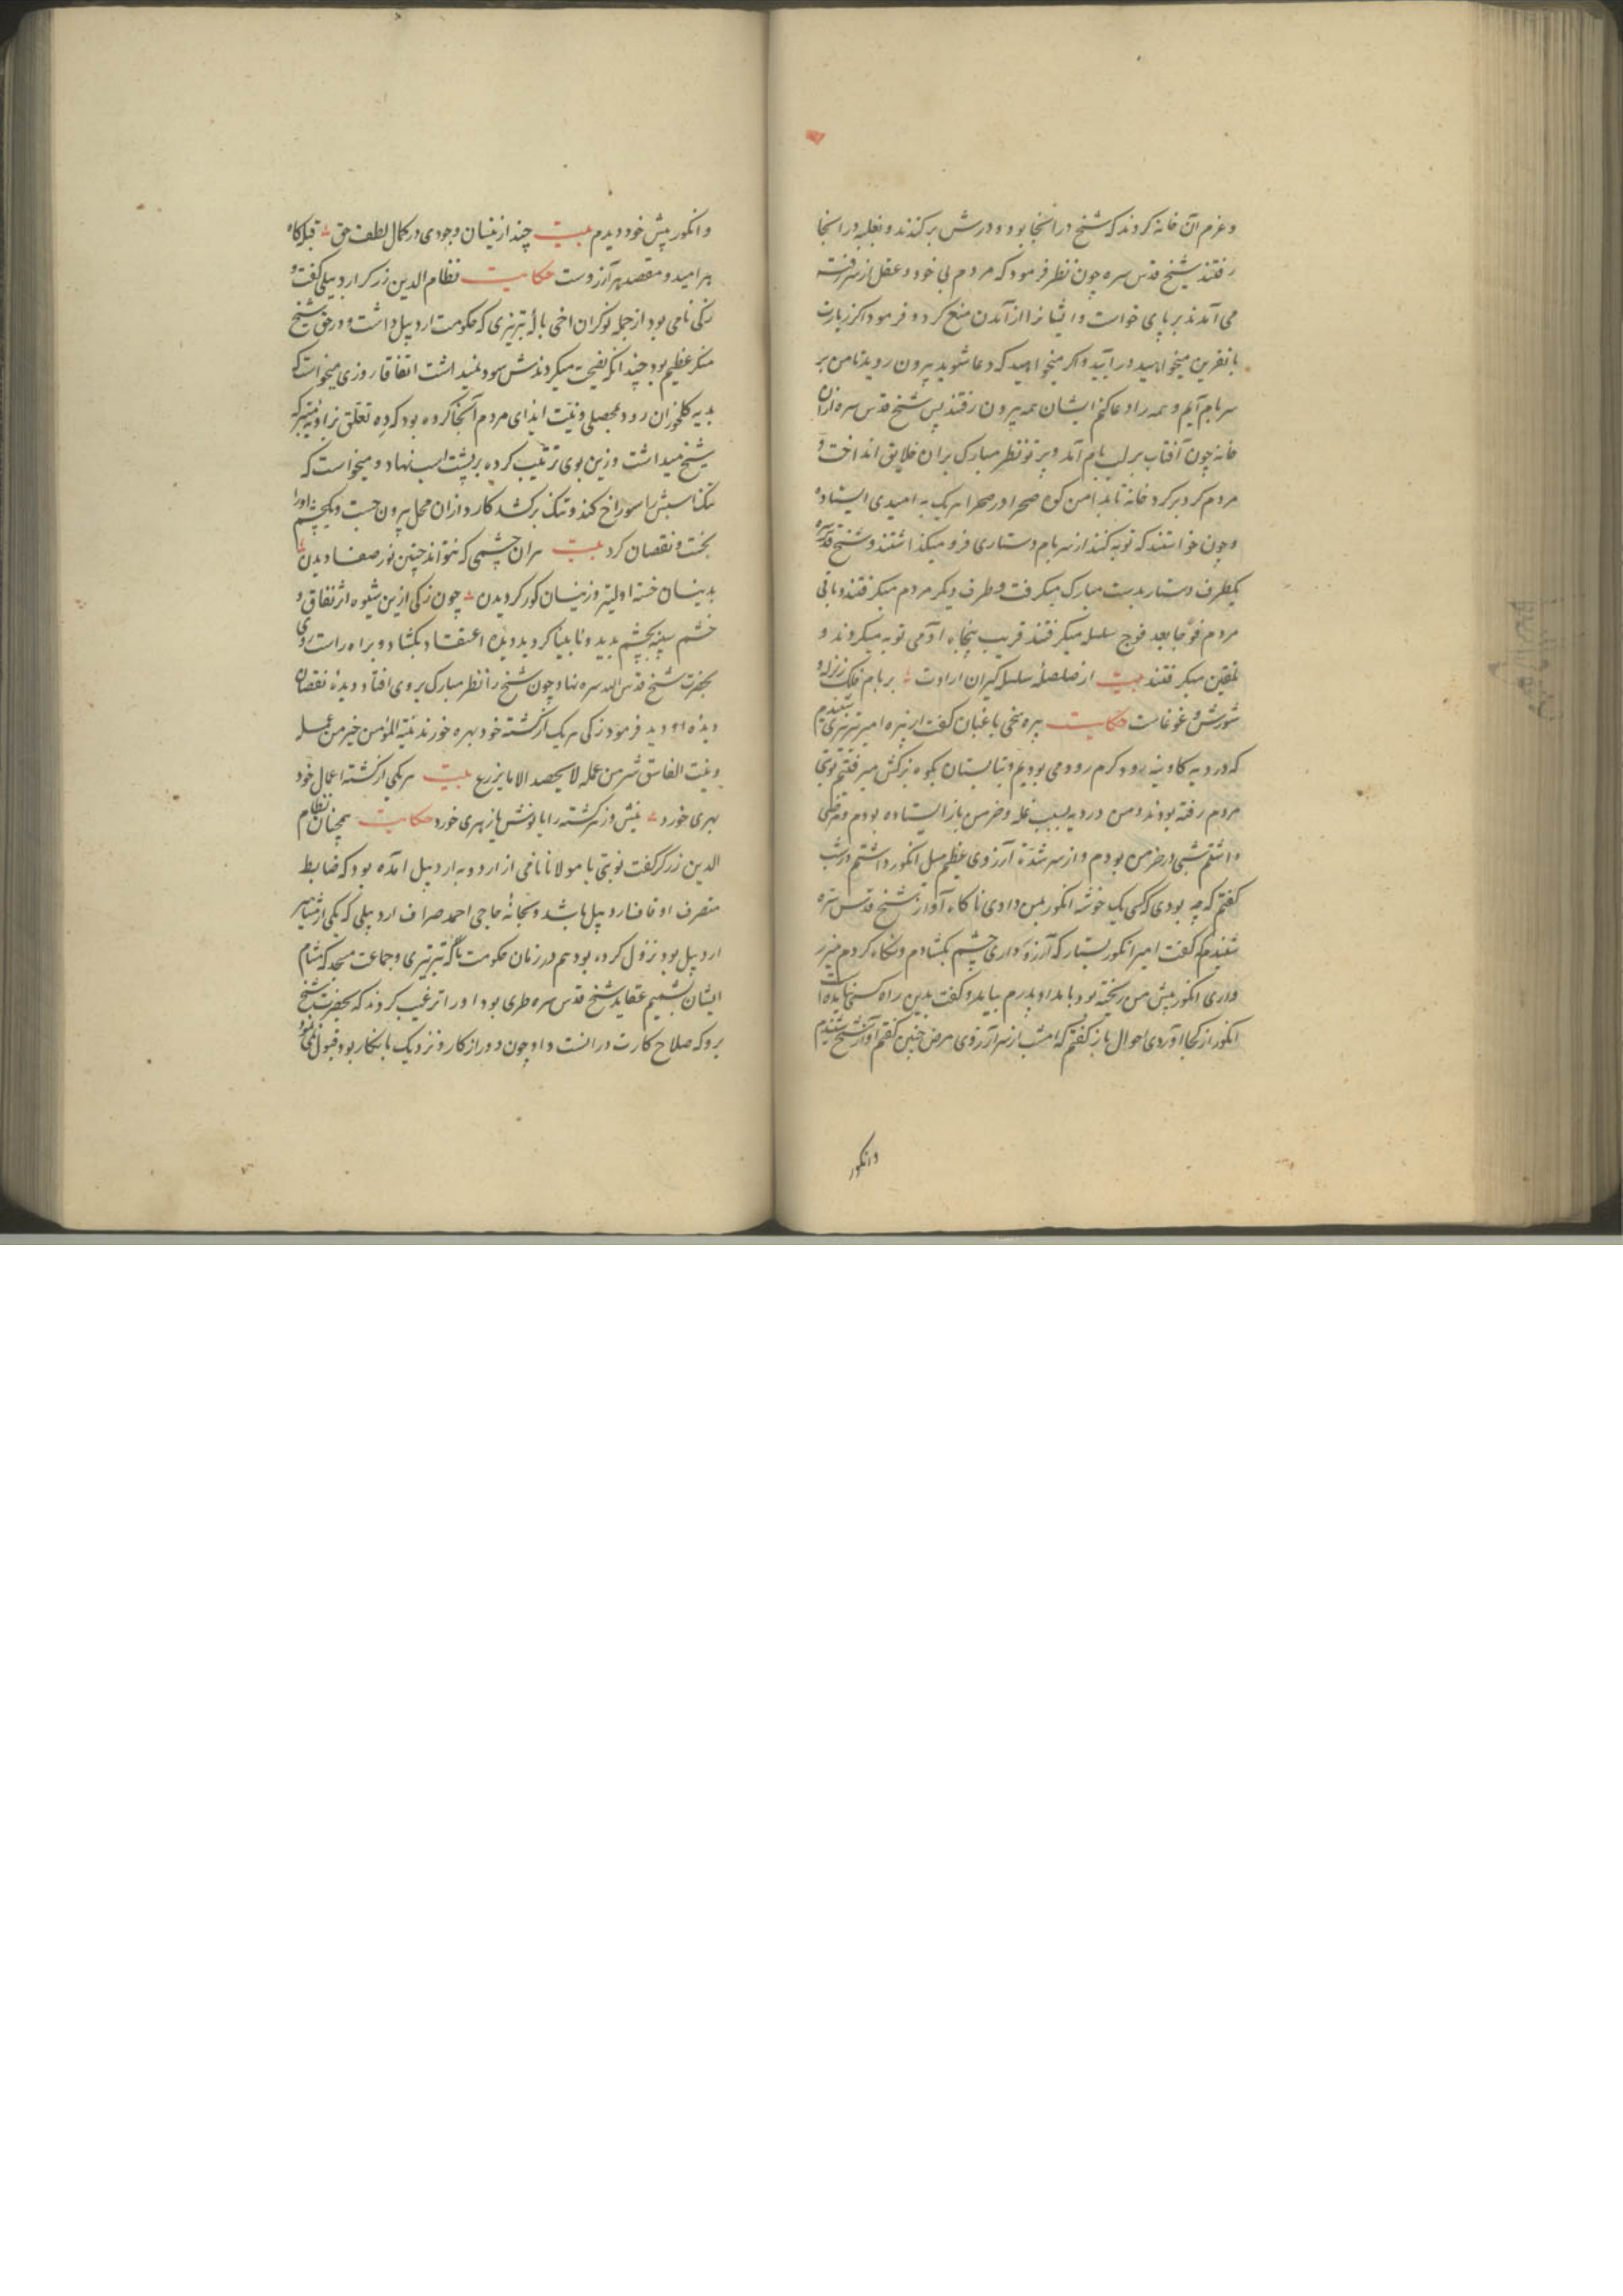 و عزم آن خانه کردند که شیخ در آنجا بود و درش بر کندند و بغلبه در انجا
رفتند شیخ قدس سره چون نظر فرمود که مردم بی خود و عقل از سر رفته
می آمدند بر پای خواست و ایشانرا از آمدن منع کرد و فرمود اکر زیارت
با نفرین میخواهید در آیید و اکر میخواهید که دعا شوید بیرون روید تا من بر
سر بام آیم و همه را دعا کنم ایشان همه بیرون رفتند پس شیخ قدس سره از ان
خانه چون آفتاب بر لب بام آمد و پرتو نظر مبارک بران خلایق انداخت و
مردم کرد بر کرد خانه تا بدامن کوه صحرا در صحرا هریک به امیدی ایستاده
و چون خواستند که توبه کنند از سر بام دستاری فرو میکذاشتند و شیخ قدس سره
یکطرف دستار بدست مبارک میکرفت و طرف دیکر مردم میکرفتند و باقی
مردم فوجا بعد فوج سلسله میکرفتند قریب پنجاه آدمی توبه میکردند و
تلقین میکرفتند بیت از صلصلۀ سلسله کیران ارادت بر بام فلک زلزله و
شورش و غوغاست حکایت پیره یخی باغبان کفت از پیره امیر تبریزی شنیدم
که در دیه کاوینه رود کرم رودمی بودیم و تابستان بکوه بزکش میرفتیم نوبتی
مردم رفته بودند و من در دیه بسبب غله و خرمن باز ایستاده بودم و مرضی
داشتم شبی در خرمن بودم و از سر شدة آرزوی عظیم میل انکور داشتم در شب
کفتم که چه بودی که کسی یک خوشه انکور بمن دادی ناکاه آواز شیخ قدس سره
شنیدم که کفت امیر انکور بستان که آرزو داری چشم بکشادم و نکاه کردم
انکور پیش من ریخته بود بامداد پدرم بیامد و کفت بدین راه کسی نیامده
انکور از کجا آوردی احوال باز کفتم که امشب از سر آرزوی مرض چنین کفتم آواز شیخ شنیدم
و انکور
و انکور پیش خود دیدم بیت چند ازینسان وجودی در کمال لطف حق قبله کاه
هر امید و مقصد هر آرزوست حکایت نظام الدین زرکر اردبیلی کفت و
زکی نامی بود از جمله نوکران اخی باکۀ تبریزی که حکومت اردبیل داشت و در حق شیخ
منکر عظیم بود چندانکه نصیحت میکردندش سود نمیداشت اتفاقا روزی میخواست که
بدیه کلخوران رود بمحصلی و نیت ایذای مردم آنجا کرده بود که ده تعلق بزاویه متبرکه
شیخ میداشت و زین بوی ترتیب کرده بر پشت اسب نهاد و میخواست که
تنک اسبش را سوراخ کند و تنک برکشد کارد از ان محل بیرون جست و یکچشم او را
بخست و نقصان کرد بیت هران چشمی که نتواند چنین نور صفا دیدن
بدینسان خسته اولیتر و زینسان کور کردیدن چون زکی ازین شیوه اثر نفاق و
خشم سینه بچشم بدید و نابینا کردید دیدۀ اعتقاد بکشاد و براه راست روی
بحضرت شیخ قدس الله سره نهاد چون شیخ را نظر مبارک بروی افتاد و دیدۀ نقصان
دیدۀ او دید فرمود زکی هریک از کشته خود بهره خورند نیة المؤمن خیر من عمله
و نیت الفاسق شر من عمله لا یحصد الا ما یزرع بیت هریکی از کشته اعمال خود
بهری خورد نیش و زهر کشته را با نوش پازهری خورد حکایت همچنان نظام
الدین زرکر کفت نوبتی با مولانا نامی از اردو به اردبیل آمده بود که ضابط
متصرف اوقاف اردبیل باشد و بخانۀ حاجی احمد صراف اردبیلی که یکی از مشاهیر
اردبیل بود نزول کرده بود هم در زمان حکومت باکۀ تبریزی و جماعت مسجد که مشام
ایشان بشمیم عقاید شیخ قدس سره طری بود او را ترغیب کردند که بحضرت شیخ
برو که صلاح کارت در انست و او چون دور از کار و نزدیک بانکار بود قبول نمی نمود